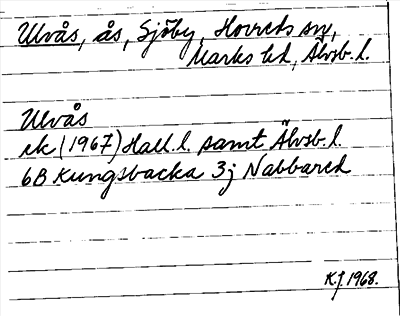 Ulvås, ås, Sjöby, Horreds sn,
Marks hd, Älvsb. l.
Ulvås
ek (1967) Hall. l. samt Älvsb. l.
6B Kungsbacka 3j Nabbared
K.J. 1968.